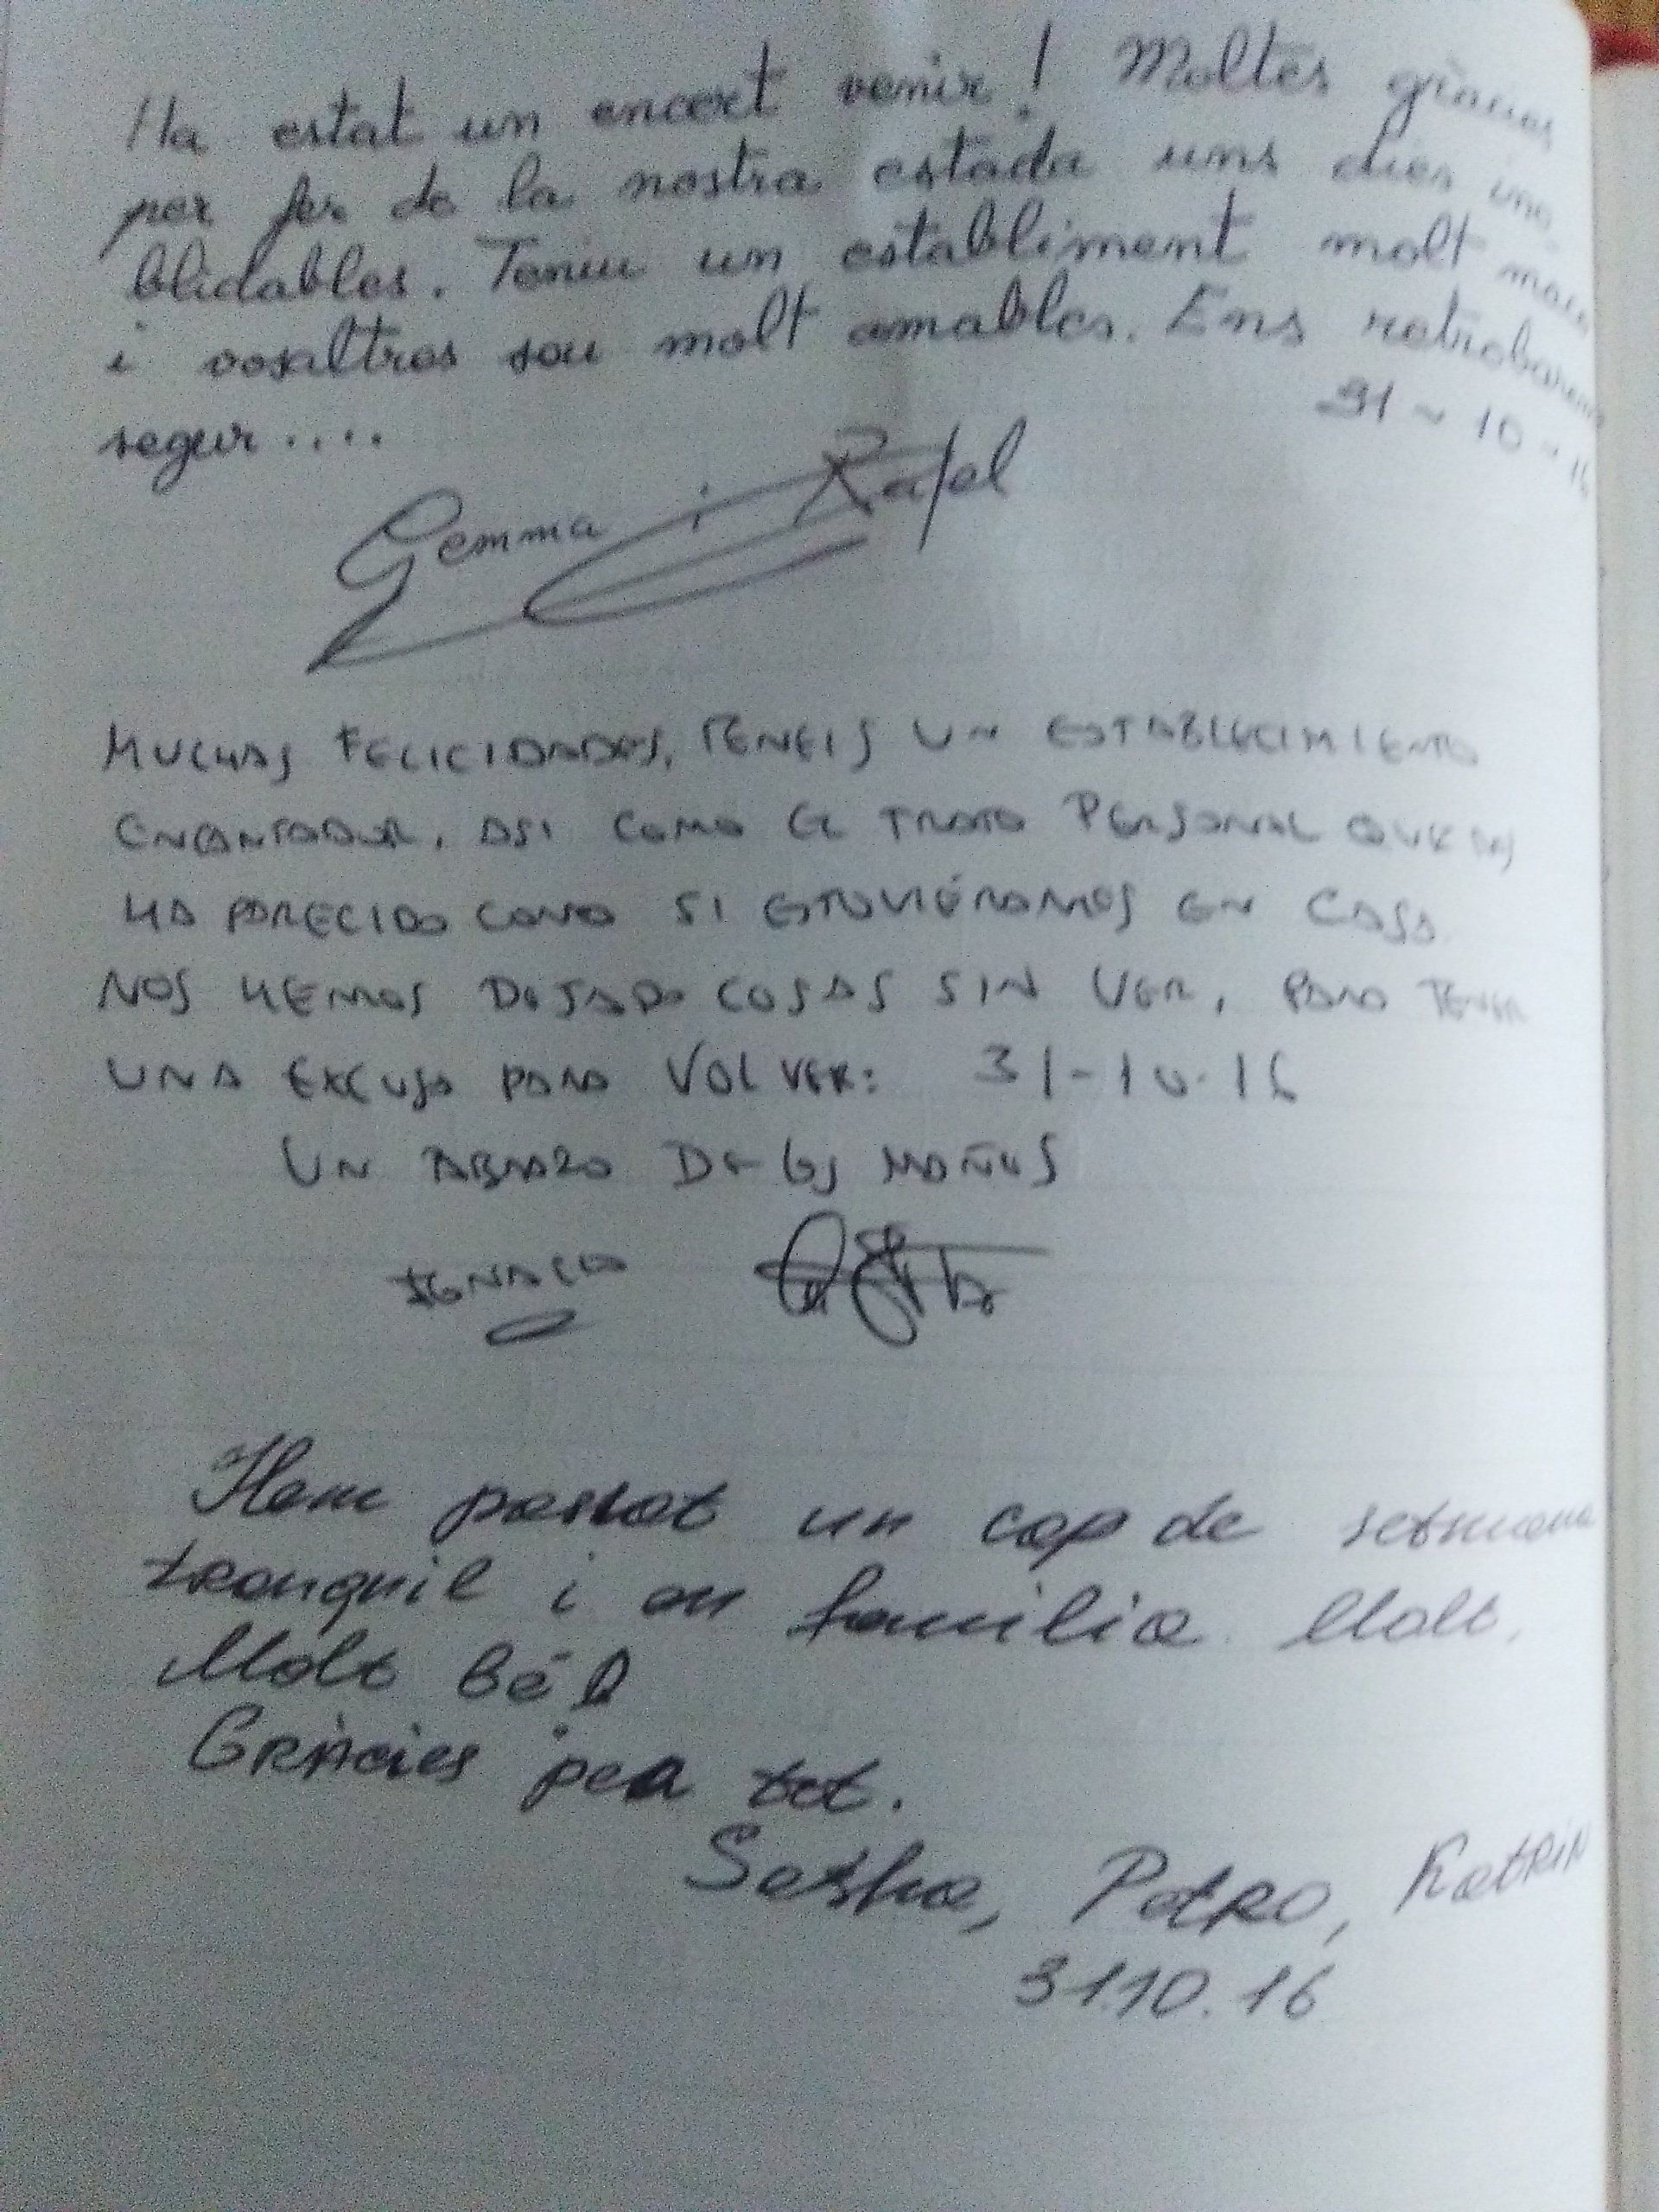 Ha estat un encert venir! Moltes gràcies
per fer de la nostra estada uns dies ino-
blidables. Teniu un establiment molt maco
i vosaltres sou molt amables. Ens retrobarem
segur....
31-10-16
Gemma i Rafel
MUCHAS FELICIDADES, TENEIS UN ESTABLECIMIENTO
ENCANTADOR, ASI COMO EL TRATO PERSONAL QUE NOS
HA PARECIDO COMO SI ESTUVIÉRAMOS EN CASA.
NOS HEMOS DEJADO COSAS SIN VER, PARA TENER
UNA EXCUSA PARA VOLVER: 31-10-16
UN ABRAZO DE LOS MAÑOS
IGNACIO
Hem passat un cap de setmana
tranquil i en familia. Molt,
Molt bé!
Gràcies per tot.
Sasha, Petro, Katrin
31.10.16